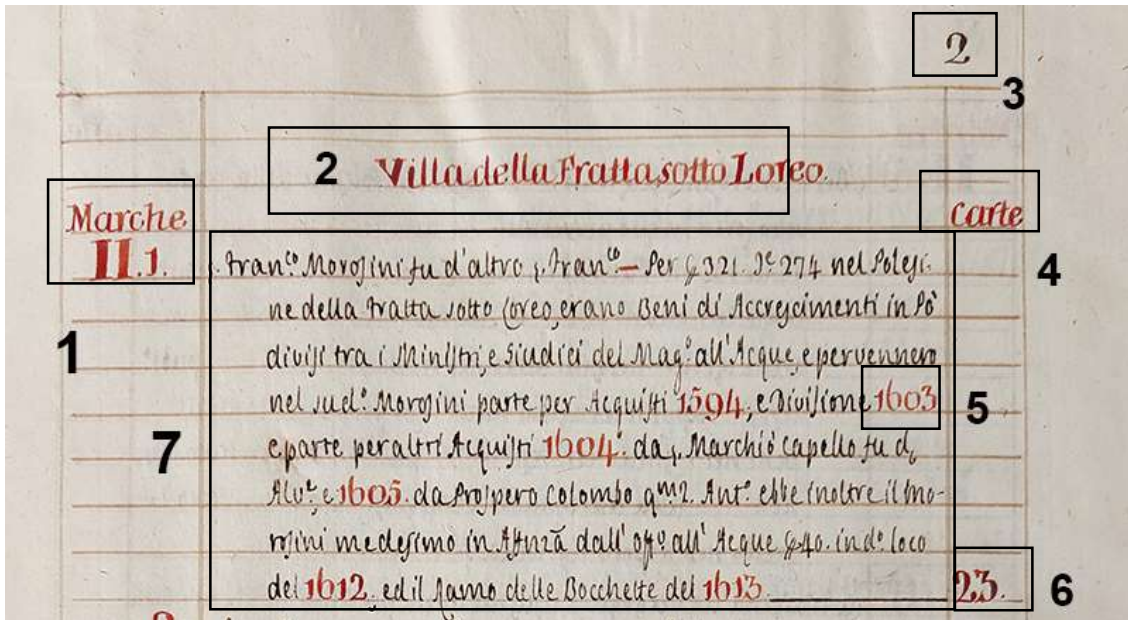 2
3
2 Villa della Fratta sotto Loreo.
Marche
Carte
II.1.
4
ſ. Fran.co Moroſini fu d'altro ſ. Fran.co — Per 321. 274 nel Poleſi-
1
ne della Fratta sotto Loreo, erano Beni di Accreſcimenti in Pò
diviſi tra i Miniſtri, e Giudici del Mag.o all'Acque, e pervennero
nel sud.o Moroſini parte per Acquiſti 1594, e Diviſione 1603
5
7
e parte per altri Acquiſti 1604. da ſ. Marchiò Capello fu
Alv.e e 1605. da Proſpero Colombo Ant.o ebbe inoltre il Mo-
roſini medeſimo in dall' all'Acque 40. in d.o loco
del 1612, ed il Ramo delle Bocchette del 1613.
23.
6